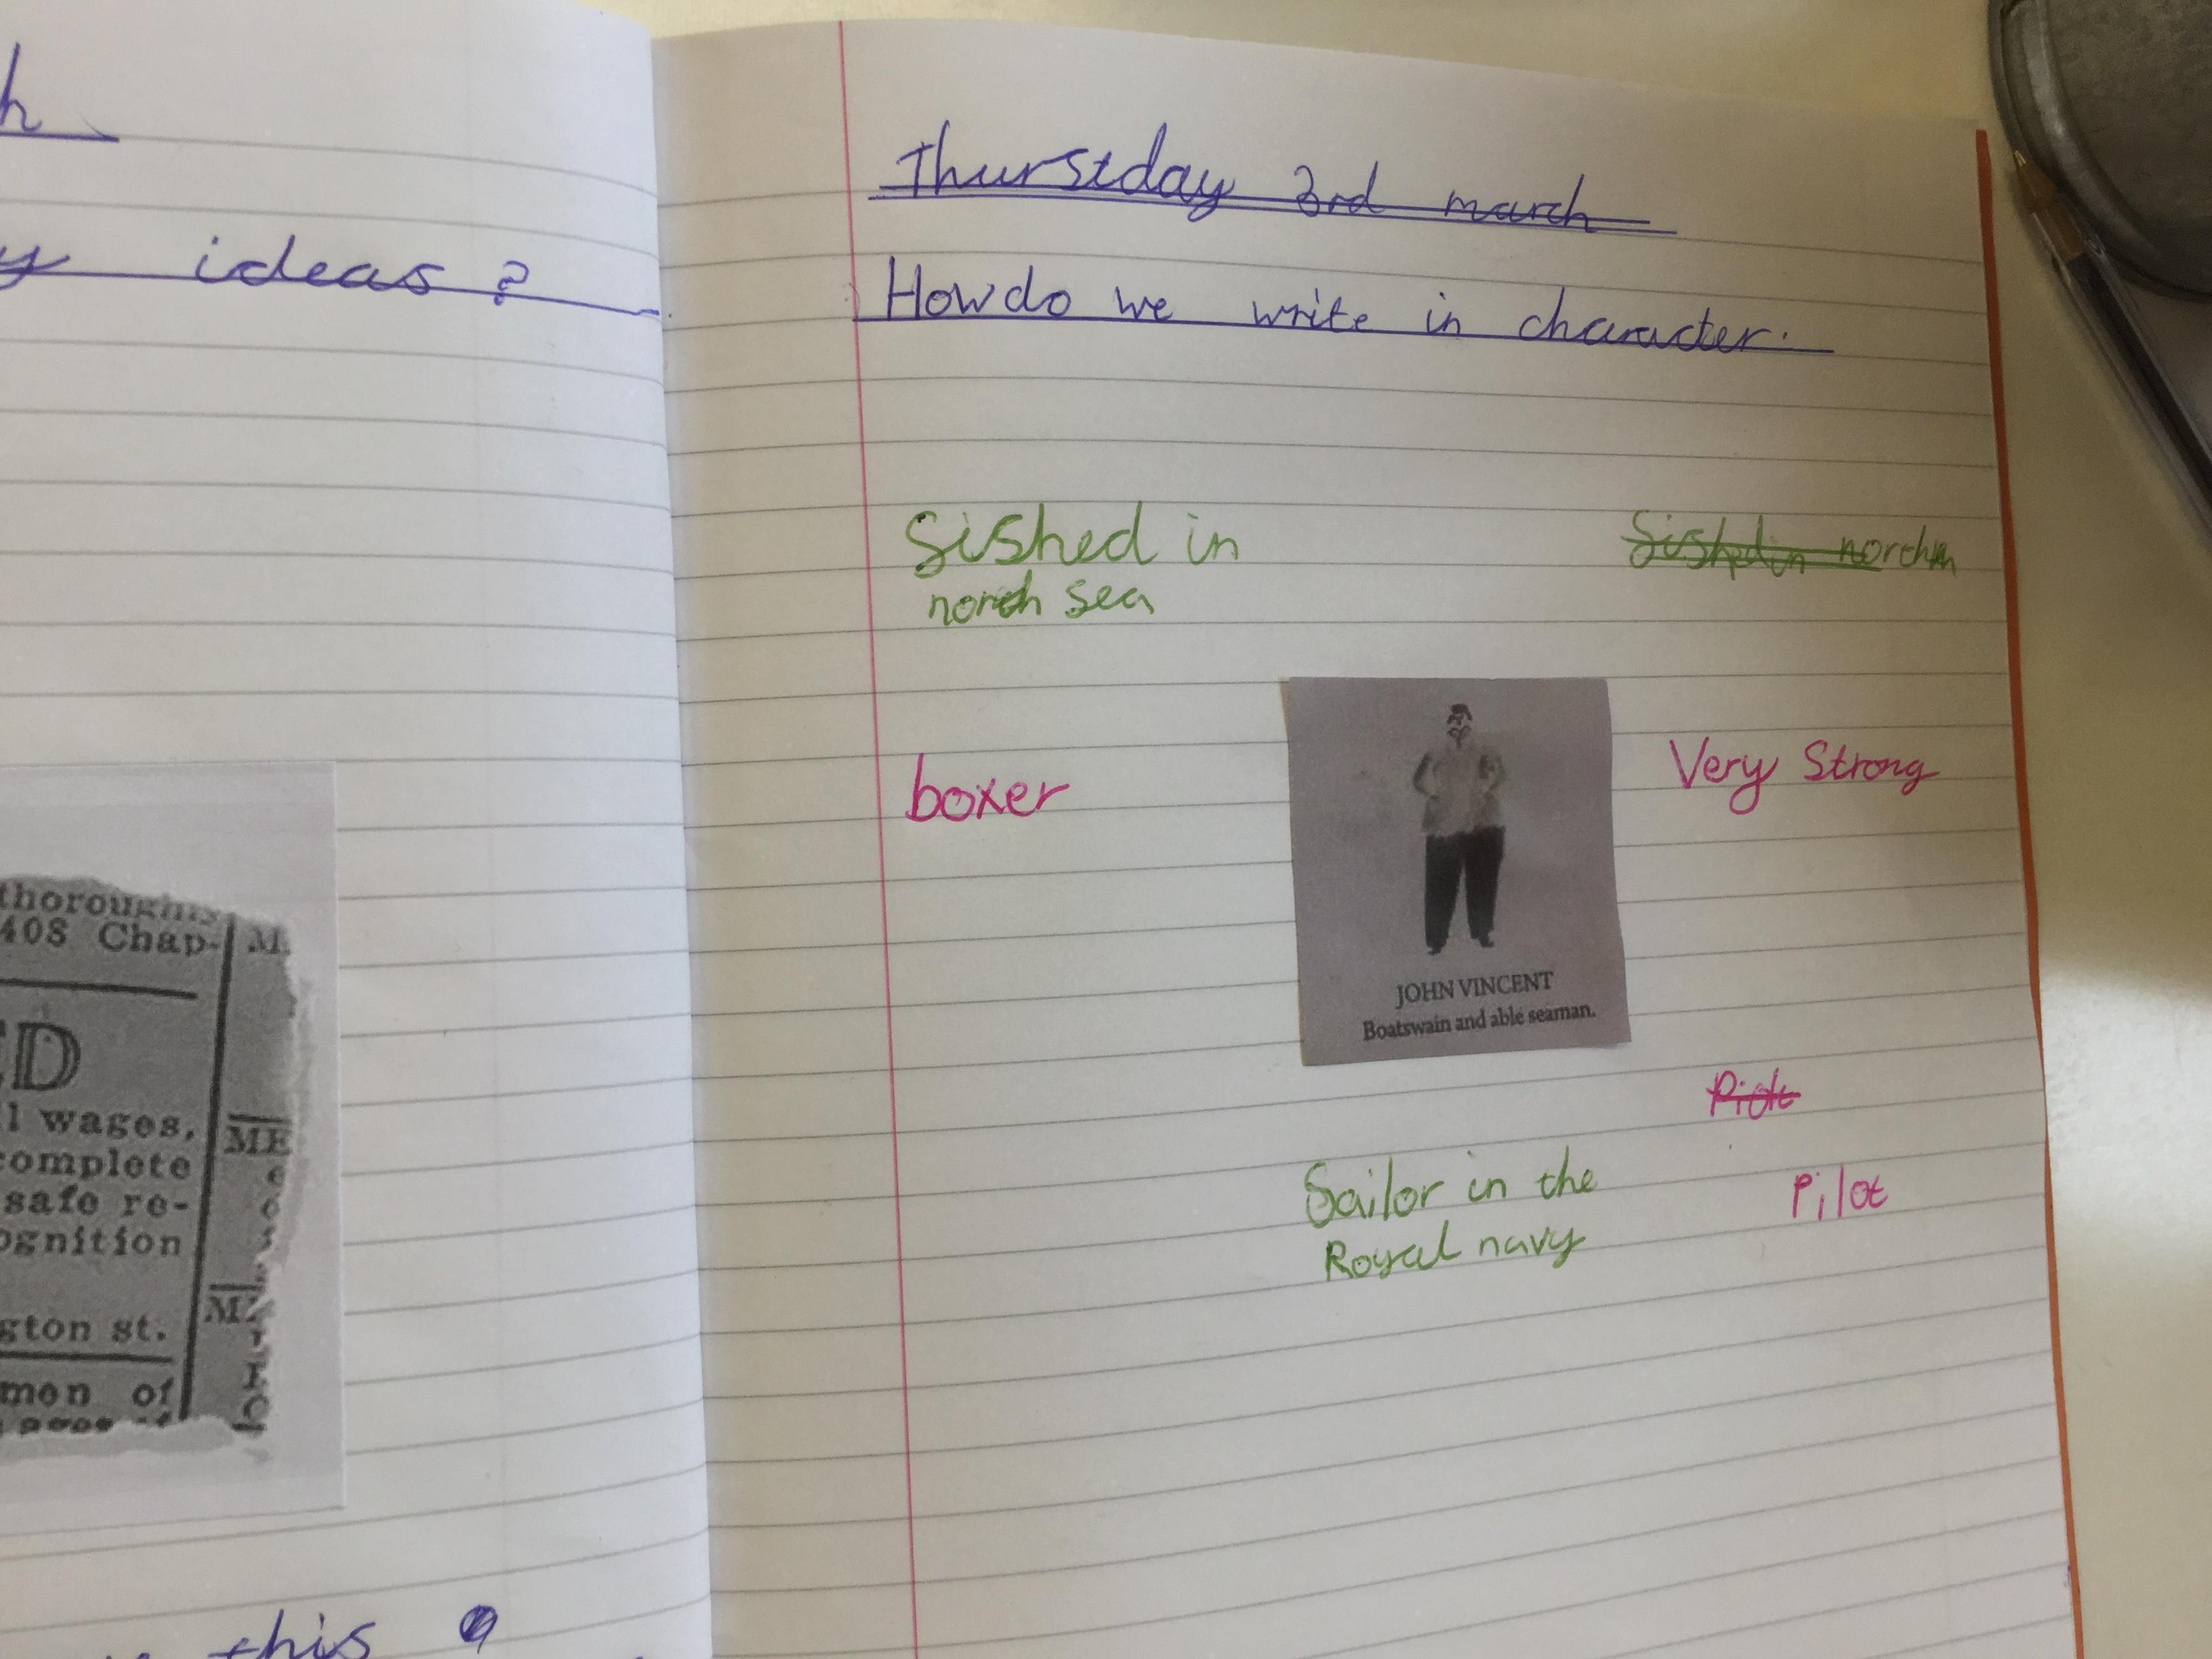 h
y ideas?
thoroughly
408 Chap-
M
ED
l wages,
ME
complete
safe re-
ognition
gton st.
men of
this
Thurstday 3rd march
How do we write in character.
Sished in
north sea
boxer
Very Strong
JOHN VINCENT
Boatswain and able seaman.
Sailor in the
Royal navy
Pilot